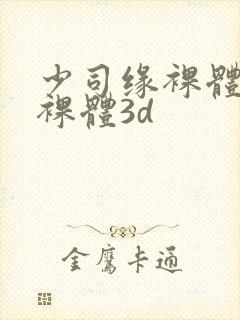 少司缘裸體
裸體3d
金鷹卡通